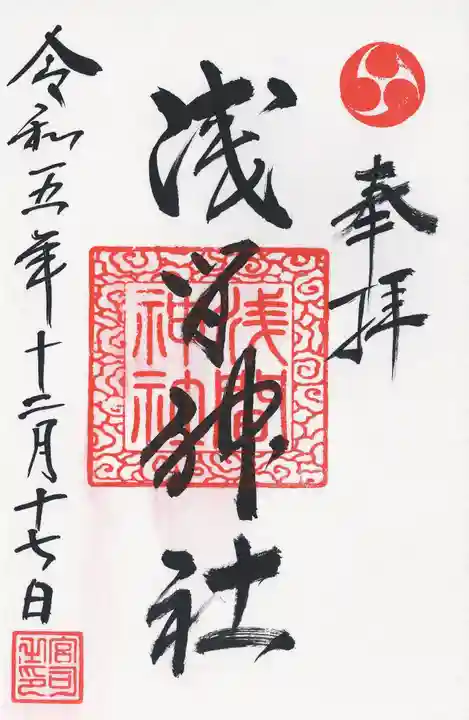 奉拝
浅间神社
浅間
神社
令和五年十二月十七日
宮司
之印